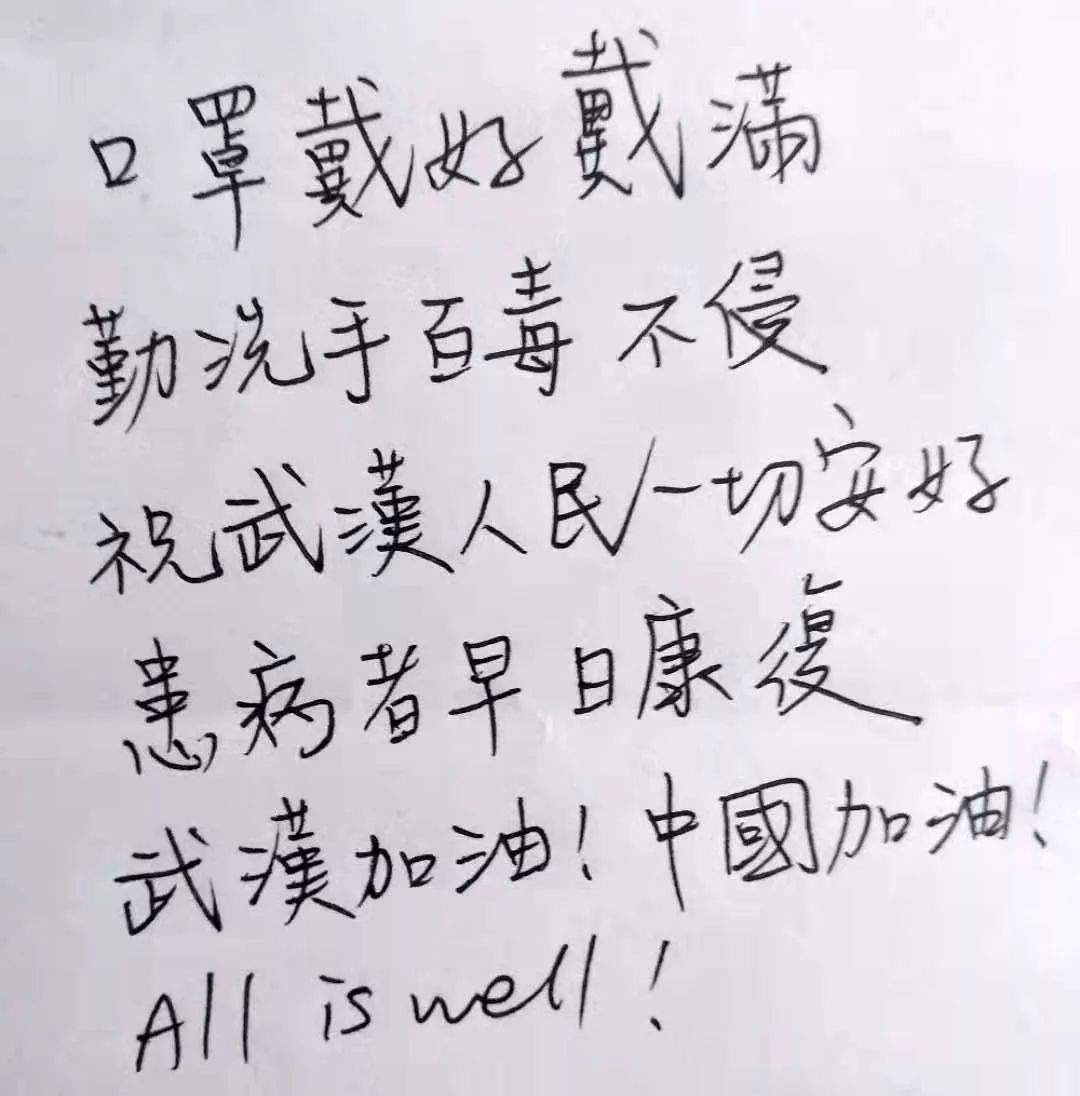 口罩戴好戴滿
勤洗手百毒不侵
祝武漢人民一切安好
患病者早日康復
武漢加油！中國加油！
All is well！